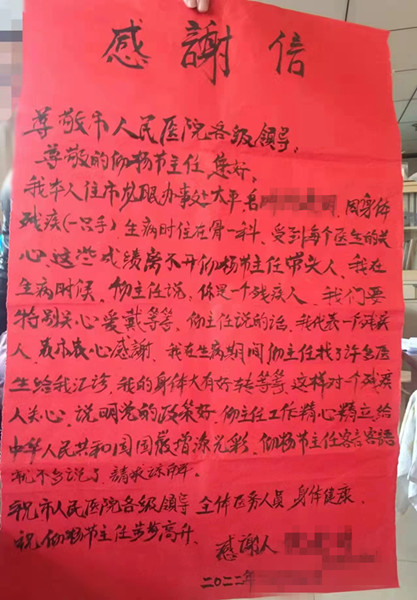 感謝信
尊敬市人民医院各级领导,
尊敬的仰杨节主任 您好,
我本人住市 办事处太平 因身体
残疾(一只手)生病时住在骨一科,受到每个医生的关
心 这些成绩离不开仰杨节主任带头人,我在
生病时候,仰主任说,你是一个残疾人,我们要
特别关心爱戴等等,仰主任说的话,我代表一个残疾
人,表示衷心感謝,我在生病期间仰主任找了许多医
生给我汇诊,我的身体大有好转等等,这样对一个残疾
人关心,说明党的政策好,仰主任工作精心 给
中华人民共和国国 增添光彩,仰杨节主任客言客语
就不多说了,请
祝市人民医院各级领导 全体医务人员 身体健康.
祝仰杨节主任步步高升 感謝人
二0二二年